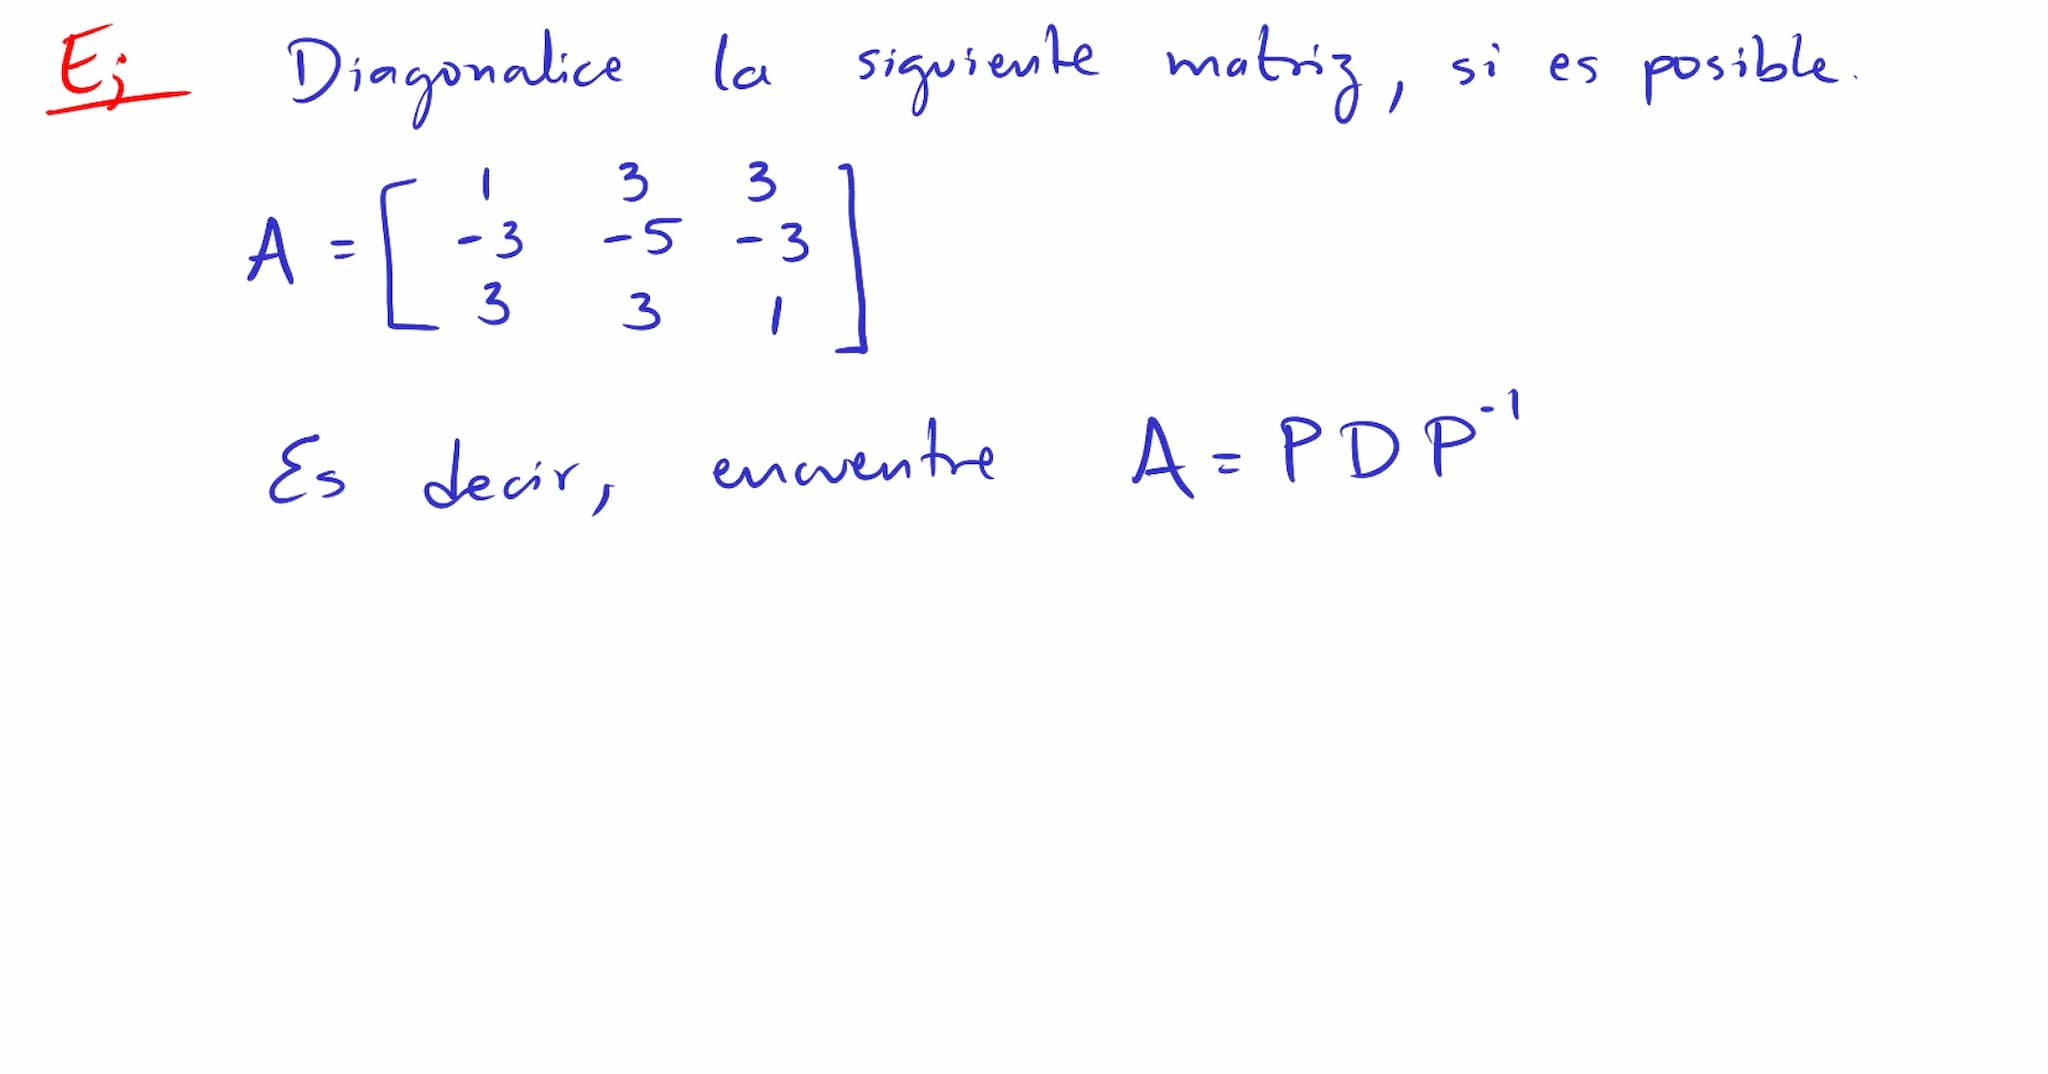 Ej Diagonalice la siguiente matriz, si es posible.
1 3 3
A = [ -3 -5 -3 ]
3 3 1
Es decir, encuentre A = PDP⁻¹